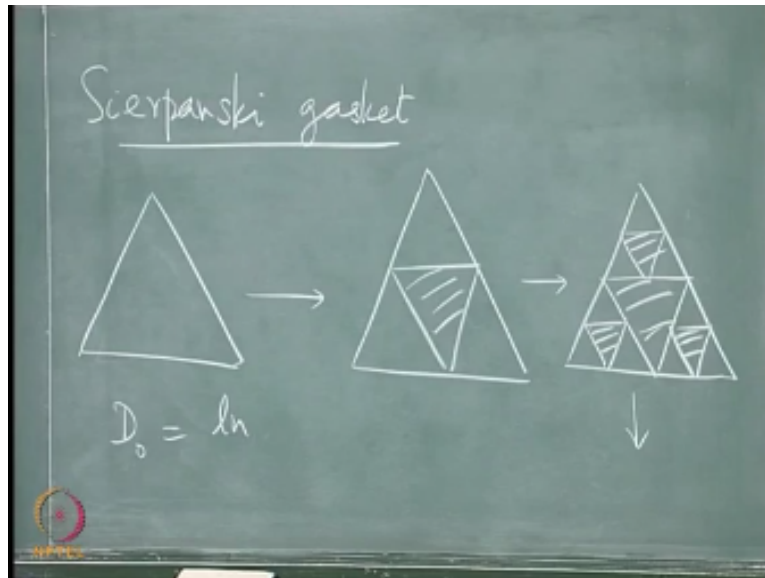 Sierpanski gasket
D₀ = ln
NPTEL